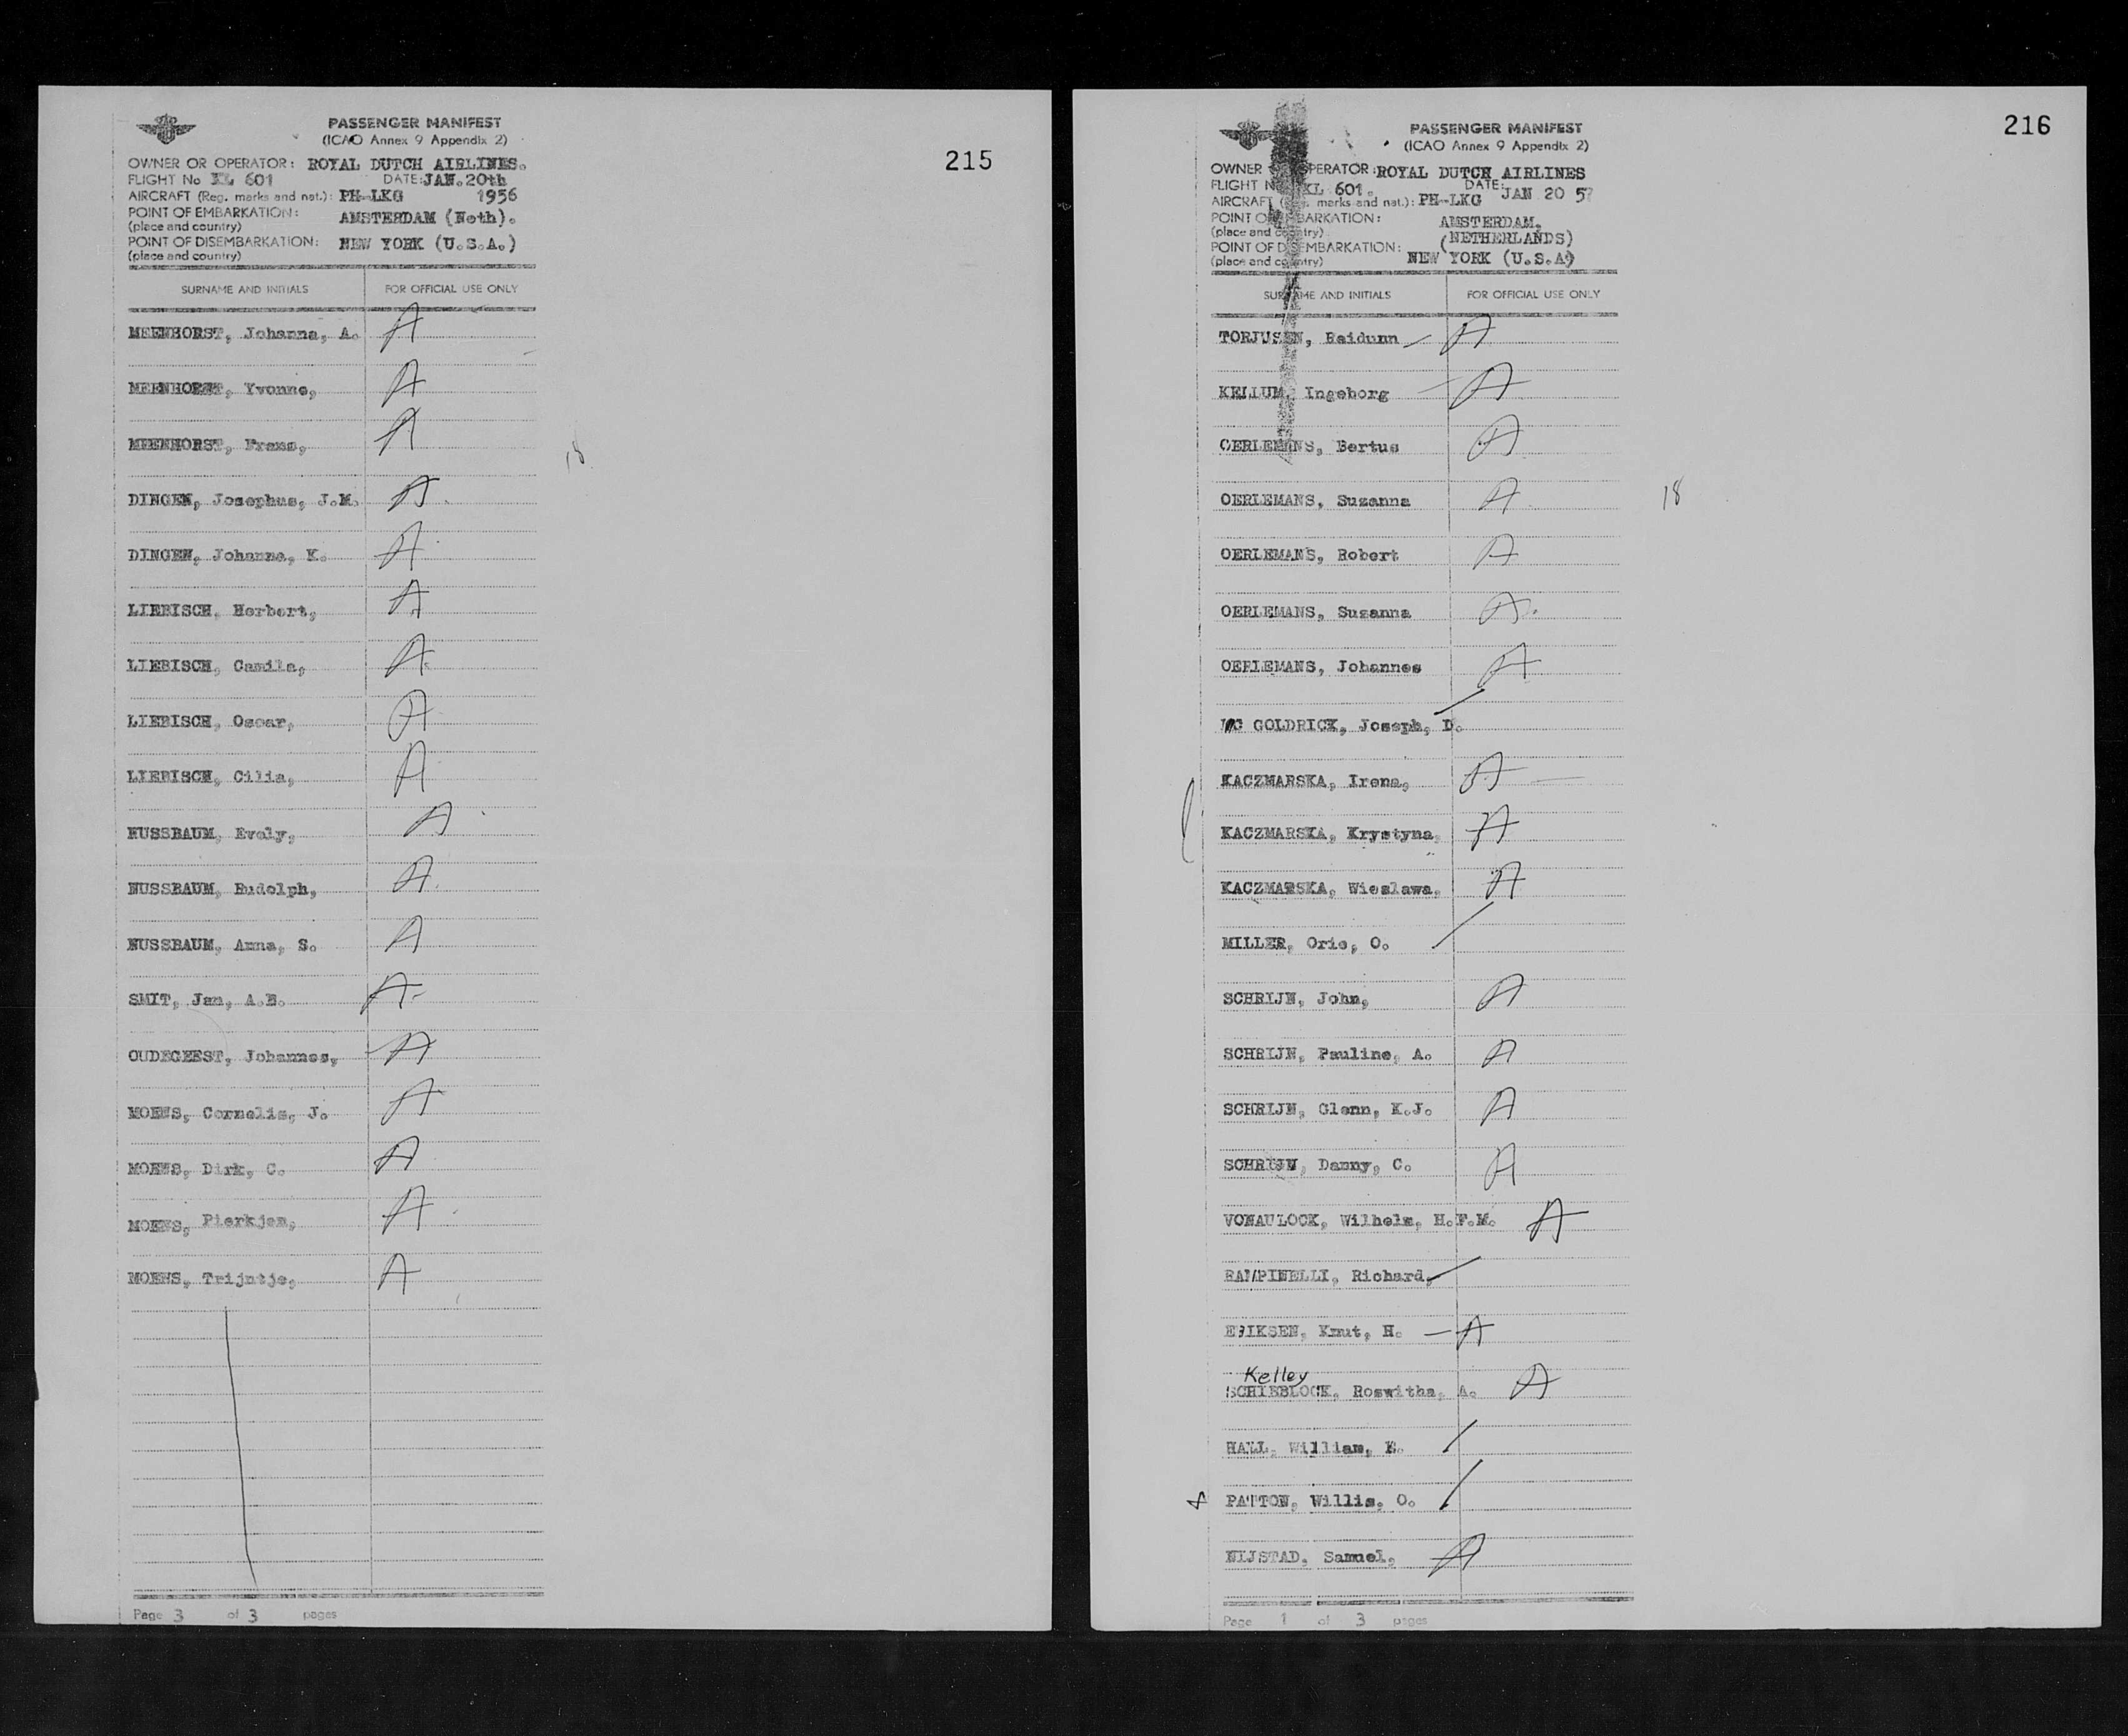 PASSENGER MANIFEST
(ICAO Annex 9 Appendix 2)
215
OWNER OR OPERATOR: ROYAL DUTCH AIRLINES.
FLIGHT No KL 601 DATE: JAN. 20th
AIRCRAFT (Reg. marks and nat.): PH-LKG 1956
POINT OF EMBARKATION: AMSTERDAM (Neth).
(place and country)
POINT OF DISEMBARKATION: NEW YORK (U.S.A.)
(place and country)
SURNAME AND INITIALS FOR OFFICIAL USE ONLY
MEENHORST, Johanna, A. A
MEENHORST, Yvonne, A
MEENHORST, Frans, A
18
DINGEN, Josephus, J.M. A
DINGEN, Johanna, K. A
LIEBISCH, Herbert, A
LIEBISCH, Camila, A
LIEBISCH, Oscar, A
LIEBISCH, Cilia, A
NUSSBAUM, Evely, A
NUSSBAUM, Rudolph, A
NUSSBAUM, Anna, S. A
SMIT, Jan, A.B. A
OUDEGEEST, Johannes, A
MOENS, Cornelis, J. A
MOENS, Dirk, C. A
MOENS, Pierkjen, A
MOENS, Trijntje, A
Page 3 of 3 pages
PASSENGER MANIFEST
(ICAO Annex 9 Appendix 2)
216
OWNER OPERATOR: ROYAL DUTCH AIRLINES
FLIGHT N KL 601. DATE: JAN 20 57
AIRCRAFT marks and nat.): PH-LKG
POINT OF EMBARKATION: AMSTERDAM.
(place and country) (NETHERLANDS)
POINT OF DISEMBARKATION: NEW YORK (U.S.A)
(place and country)
SURNAME AND INITIALS FOR OFFICIAL USE ONLY
TORJUSEN, Reidunn A
KELLUM, Ingeborg A
OERLEMANS, Bertus A
OERLEMANS, Suzanna A
18
OERLEMANS, Robert A
OERLEMANS, Suzanna A
OERLEMANS, Johannes A
MC GOLDRICK, Joseph, D.
KACZMARSKA, Irena, A
KACZMARSKA, Krystyna, A
KACZMARSKA, Wieslawa, A
MILLER, Orie, O.
SCHRIJN, John, A
SCHRIJN, Pauline, A. A
SCHRIJN, Glenn, K.J. A
SCHRIJN, Danny, C. A
VONAULOCK, Wilhelm, H.F.M. A
RAMPINELLI, Richard,
ERIKSEN, Knut, H. A
Kelley
SCHIEBLOCK, Roswitha, A. A
HALL, William, E.
PATTON, Willis, O.
NIJSTAD, Samuel, A
Page 1 of 3 pages